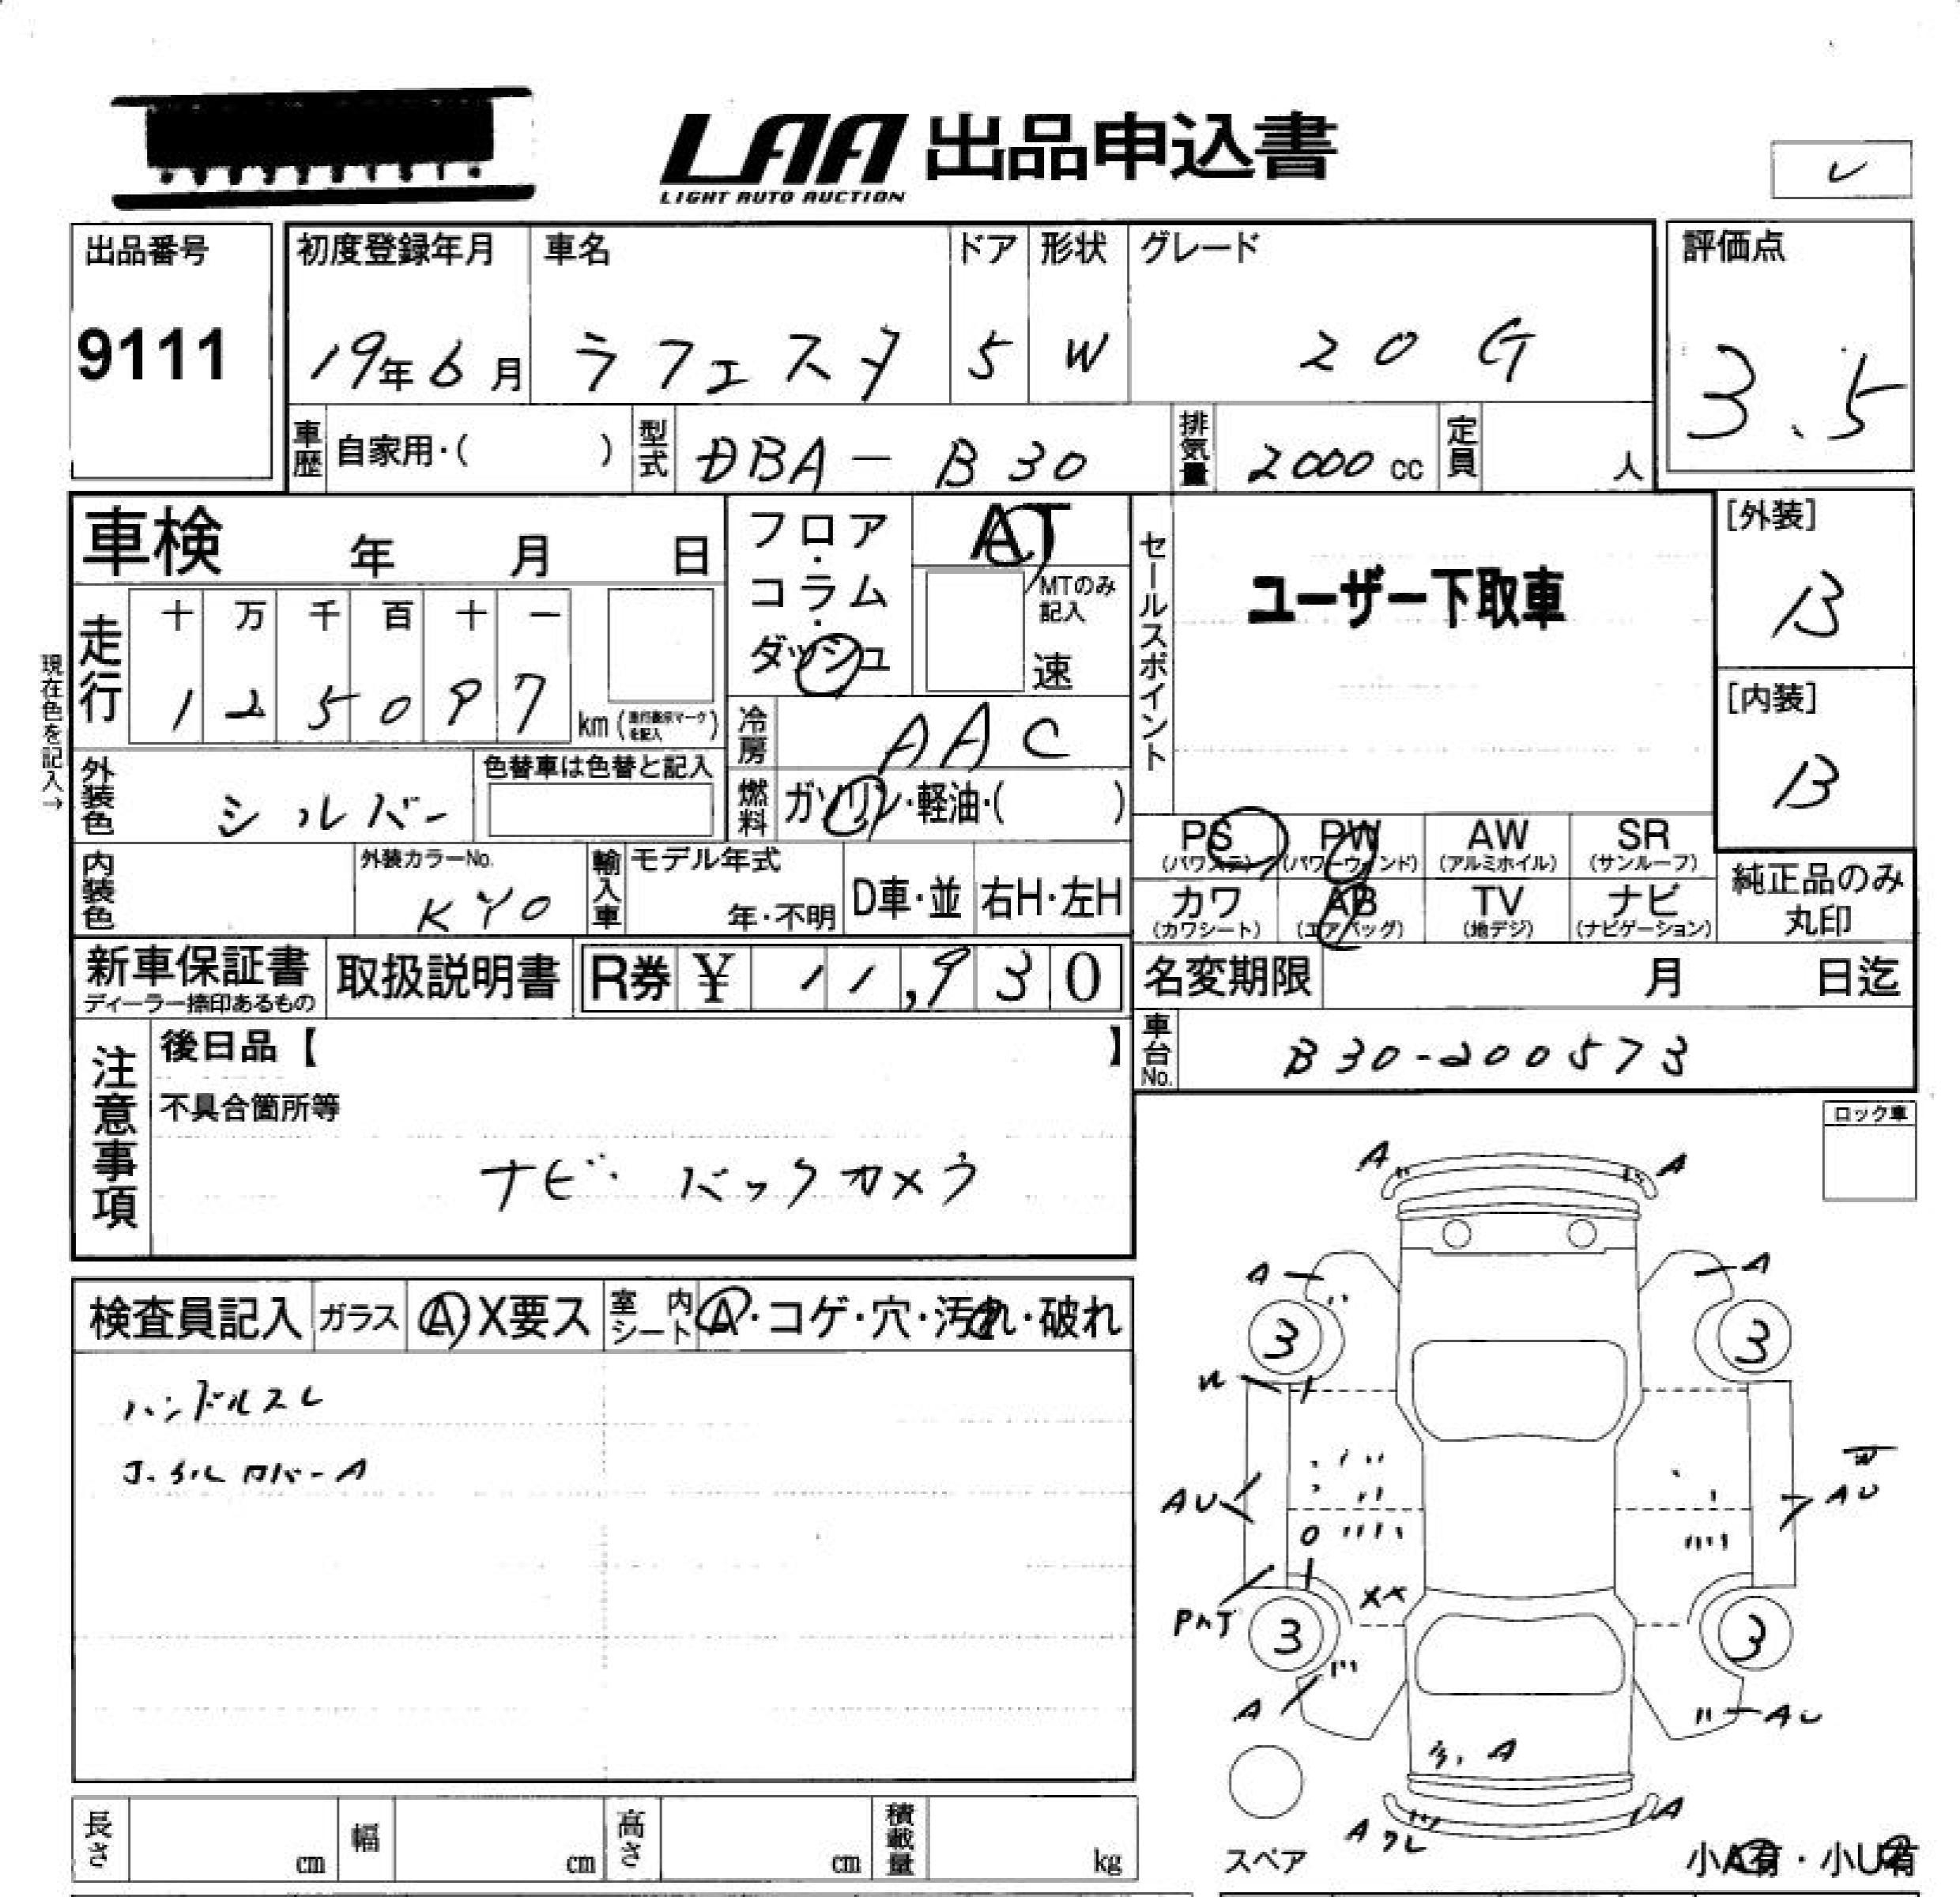 LAA 出品申込書
LIGHT AUTO AUCTION
出品番号
9111
初度登録年月
19年6月
車名
ラフェスタ
ドア
5
形状
W
グレード
20 G
評価点
3.5
車歴 自家用・( )
型式 DBA-B30
排気量 2000 cc
定員 人
車検 年 月 日
フロア・コラム・ダッシュ
AT
MTのみ記入
速
セールスポイント
ユーザー下取車
[外装]
B
[内装]
B
現在色を記入→
走行
十 万 千 百 十 一
1 2 5 0 9 7 km (走行表示マークを記入)
冷房 AAC
外装色 シルバー
色替車は色替と記入
燃料 ガソリン・軽油・( )
PS (パワステ)
PW (パワーウィンド)
AW (アルミホイル)
SR (サンルーフ)
カワ (カワシート)
AB (エアバッグ)
TV (地デジ)
ナビ (ナビゲーション)
純正品のみ丸印
内装色
外装カラーNo.
KY0
輸入車
モデル年式
年・不明
D車・並
右H・左H
新車保証書
ディーラー捺印あるもの
取扱説明書
R券 ¥ 11,930
名変期限 月 日迄
車台No. B30-200573
注意事項
後日品【 】
不具合箇所等
ナビ・バックカメラ
ロック車
検査員記入 ガラス A X要ス 室内シート A・コゲ・穴・汚れ・破れ
ハンドルスレ
A A
A A
3 3
W
W
AU AU
3 3
A AU
A
A A
スペア
小A有・小U有
長さ cm 幅 cm 高さ cm 積載量 kg